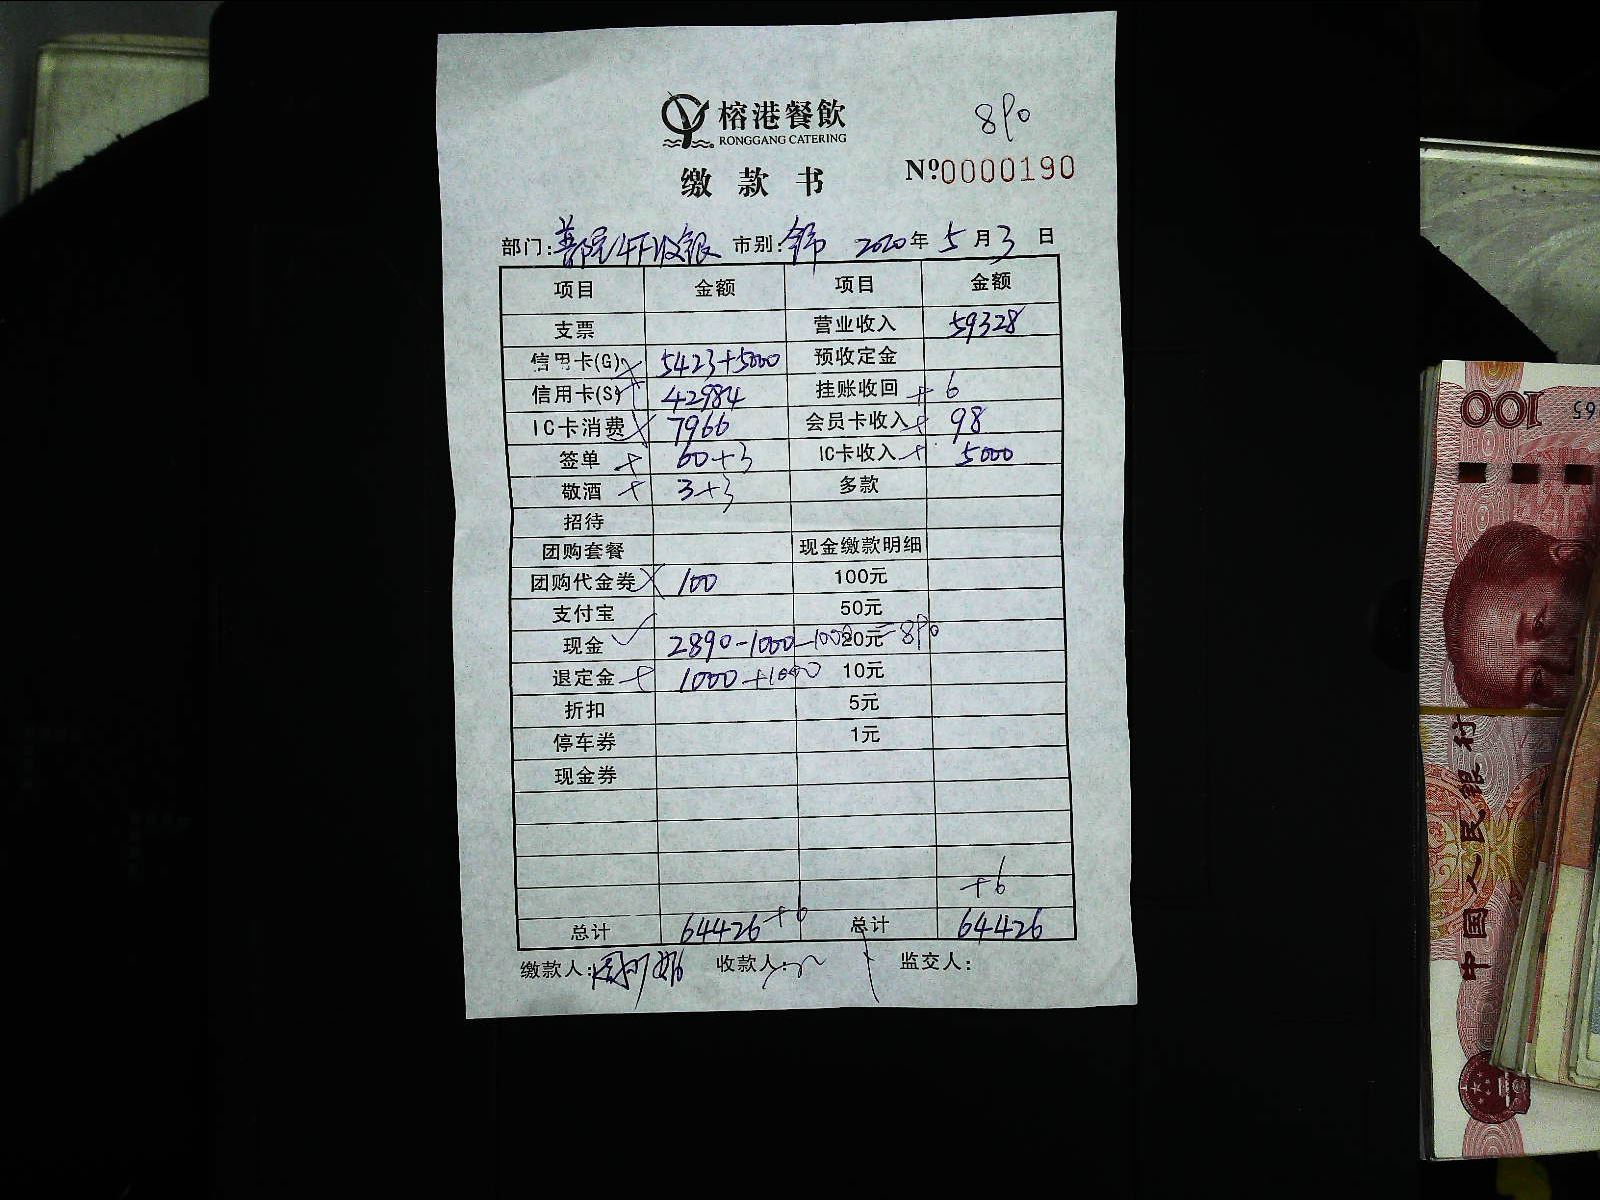 榕港餐飲
RONGGANG CATERING
890
缴款书
Nº0000190
部门: 4F收银 市别: 2020年5月3日
项目 金额 项目 金额
支票 营业收入 59328
信用卡(G) 5423+5000 预收定金
信用卡(S) 42984 挂账收回 +6
IC卡消费 7966 会员卡收入 98
签单 60+3 IC卡收入 5000
敬酒 3+3 多款
招待
团购套餐 现金缴款明细
团购代金券 100 100元
支付宝 50元
现金 2890-1000-1000=890 20元
退定金 1000+1000 10元
折扣 5元
停车券 1元
现金券
+6
总计 64426+6 总计 64426
缴款人: 收款人: 监交人:
100
65
中国人民银行